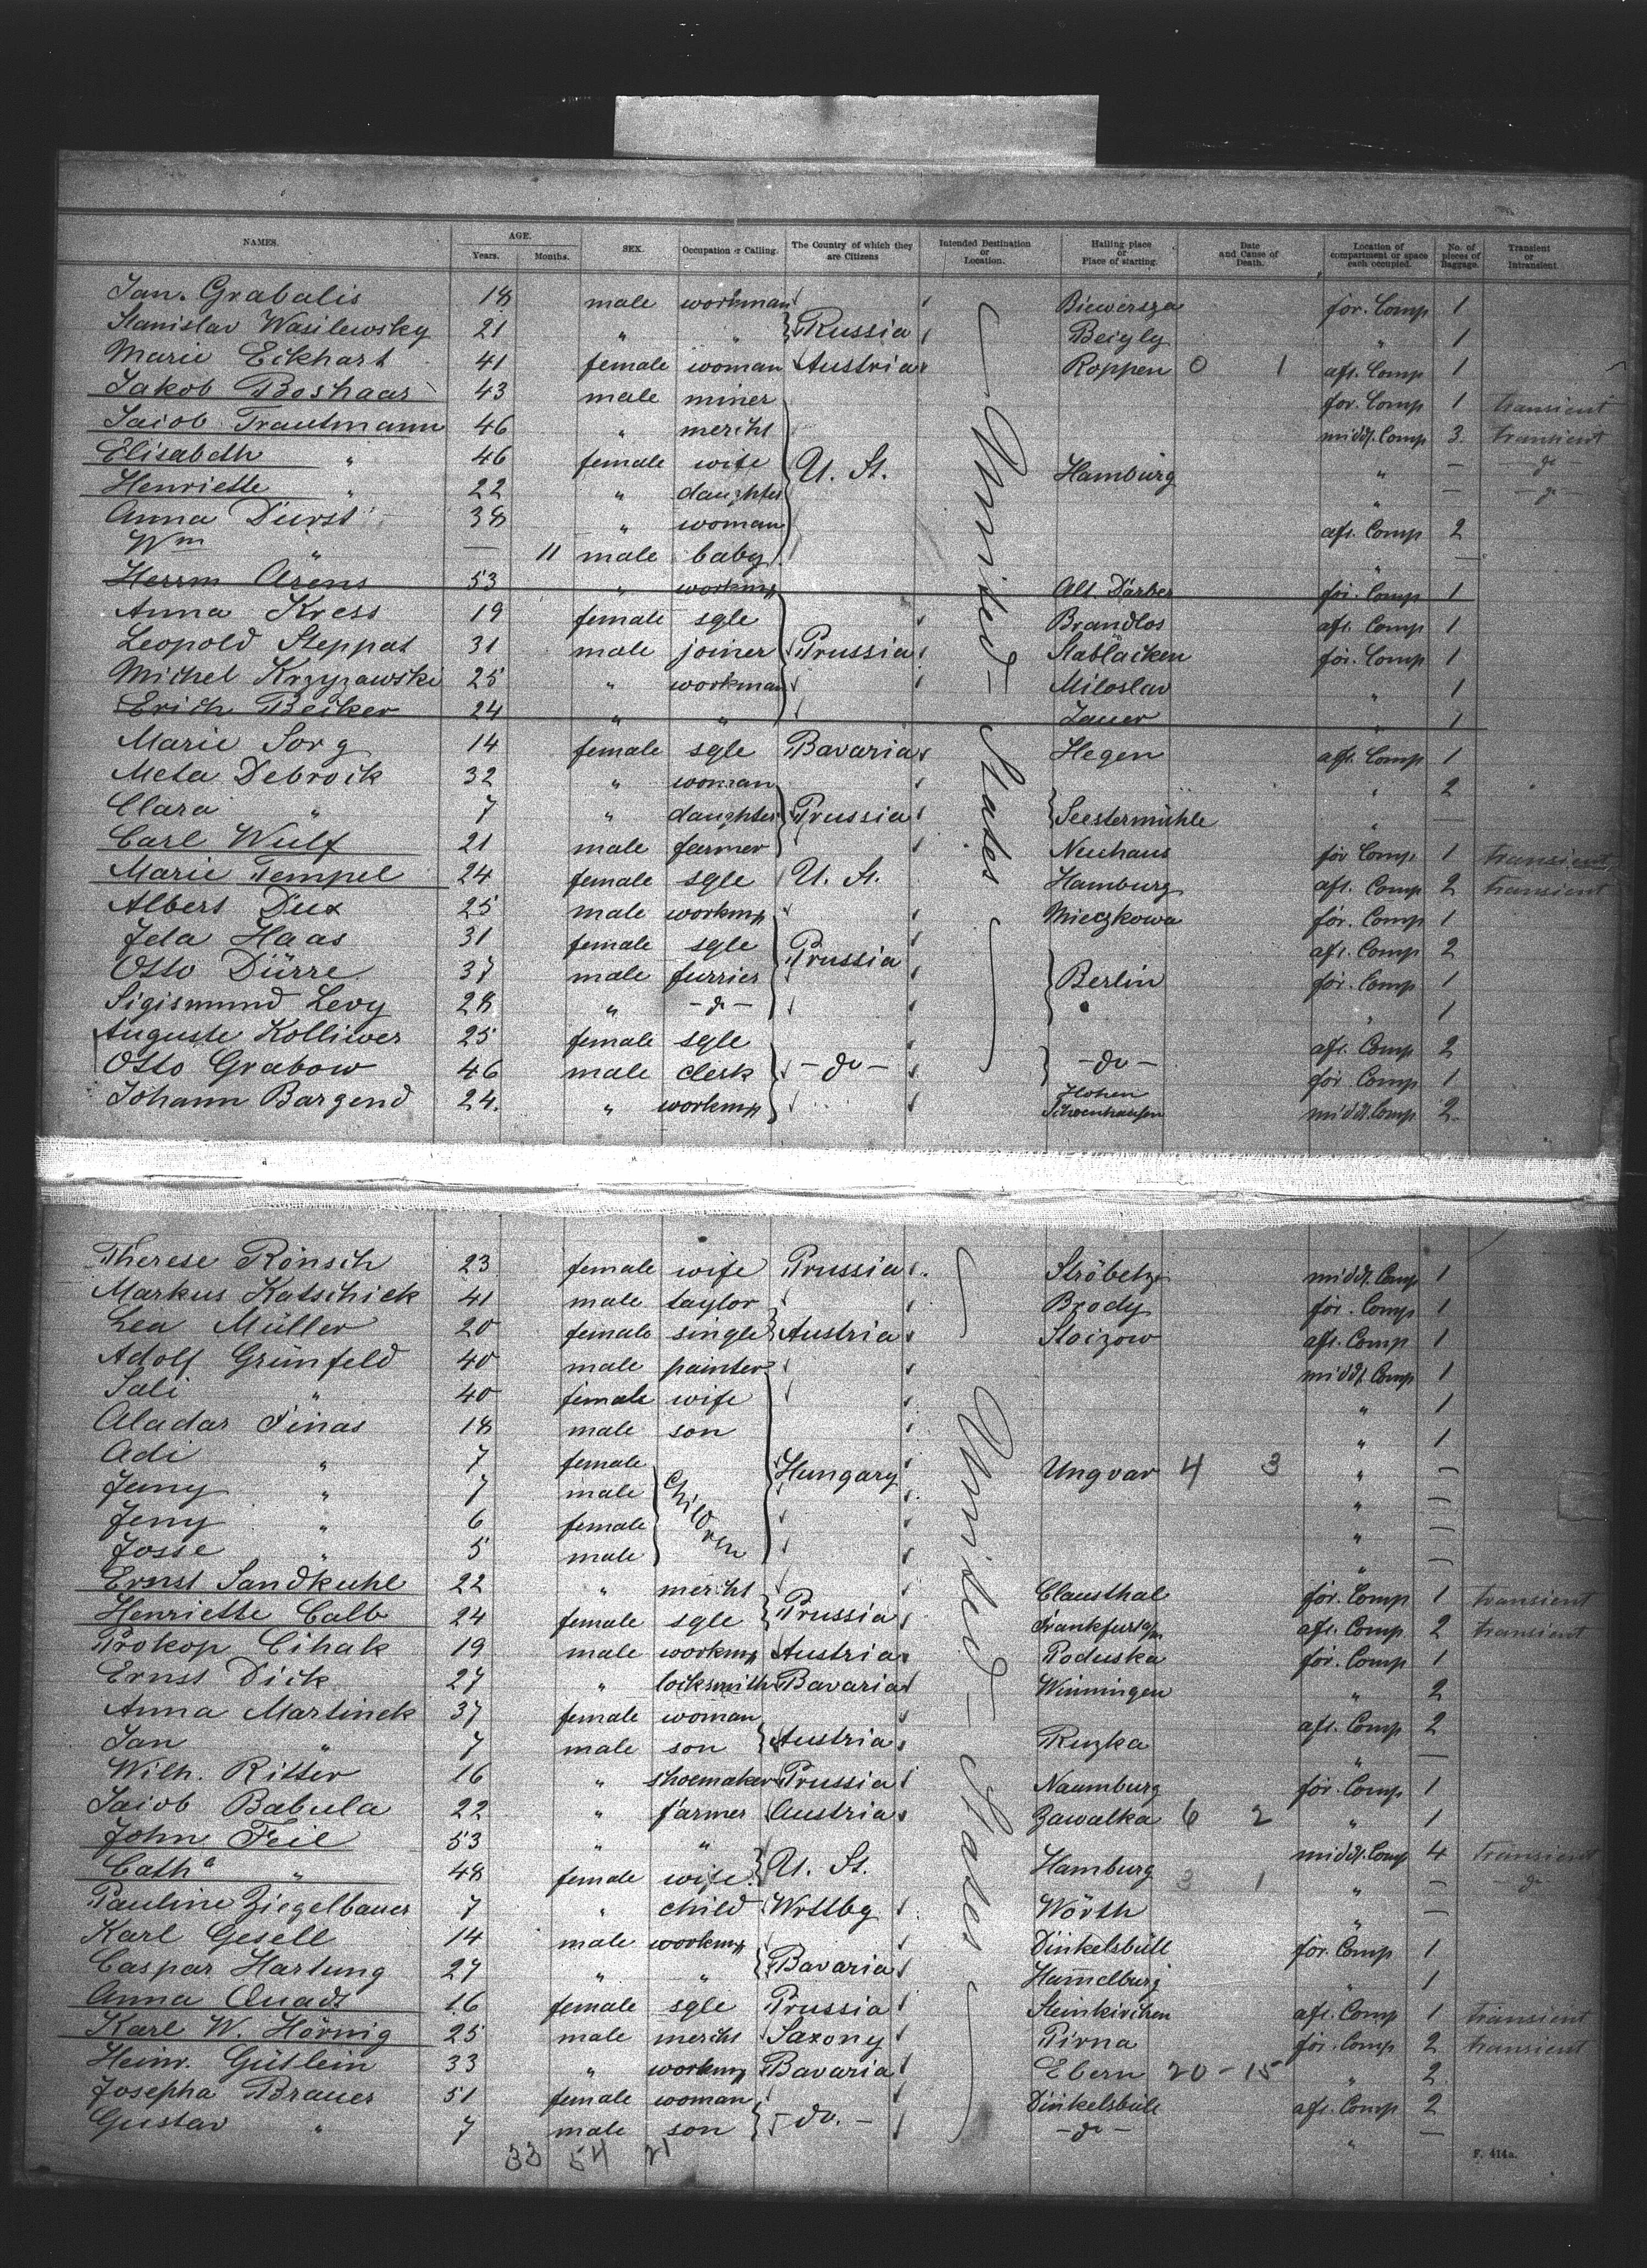 NAMES. AGE. Years. Months. SEX. Occupation or Calling. The Country of which they are Citizens Intended Destination or Location. Hailing place or Place of starting. Date and Cause of Death. Location of compartment or space each occupied. No. of pieces of Baggage. Transient or Intransient.
Jan. Grabalis 18 male workman Biewersza for. Comp 1
Stanislav Wasilewsky 21 " " Russia Beigly " 1
Marie Eckhart 41 female woman Austria Roppen 0 1 aft. Comp 1
Jakob Boshaar 43 male miner for. Comp 1 transient
Jacob Trautmann 46 " mercht middl. Comp 3 transient
Elisabeth " 46 female wife U. St. Hamburg " — do
Henriette " 22 " daughter " — do
Anna Durst 38 " woman aft. Comp 2
Wm " — 11 male baby " —
Herrm Arens 53 " workmn Alt. Därber for. Comp 1
Anna Kress 19 female sgle Brandlos aft. Comp 1
Leopold Steppat 31 male joiner Prussia Stabläcken for. Comp 1
Michel Krzyzawski 25 " workman Miloslav " 1
Erich Becker 24 " " Jauer " 1
Marie Sorg 14 female sgle Bavaria Hegen aft. Comp 1
Meta Debrock 32 " woman " 2
Clara " 7 " daughter Prussia Seestermühle " —
Carl Wulf 21 male farmer Neuhaus for Comp 1 transient
Marie Tempel 24 female sgle U. St. Hamburg aft. Comp 2 transient
Albert Dux 25 male workmn Mieczkowa for. Comp 1
Jda Haas 31 female sgle Prussia aft. Comp 2
Otto Dürre 37 male furrier Berlin for. Comp 1
Sigismund Levy 28 " - do - " 1
Auguste Kolliwer 25 female sgle aft. Comp 2
Otto Grabow 46 male clerk - do - - do - for Comp 1
Johann Bargend 24. " workmn Hohen Schoenhausen middl. Comp 2
United States
Therese Rönsch 23 female wife Prussia Ströbetz middl. Comp 1
Markus Katschick 41 male taylor Brody for. Comp 1
Lea Müller 20 female single Austria Stoizow aft. Comp 1
Adolf Grünfeld 40 male painter middl. Comp 1
Sali " 40 female wife " 1
Aladar Finas 18 male son " 1
Adi " 7 female Hungary Ungvar 4 3 " —
Jeny " 7 male Children " —
Jeny " 6 female " —
Josse " 5 male " —
Ernst Sandkuhl 22 " mercht Clausthal for. Comp 1 transient
Henriette Calb 24 female sgle Prussia Frankfurt a/m aft. Comp 2 transient
Prokop Cihak 19 male workmn Austria Poduska for. Comp 1
Ernst Dick 27 " locksmith Bavaria Winningen " 2
Anna Martinek 37 female woman aft. Comp 2
Jan " 7 male son Austria Ruzka " —
Wilh. Ritter 16 " shoemaker Prussia Naumburg for. Comp 1
Jacob Babula 22 " farmer Austria Zawalka 6 2 " 1
John Feil 53 " " middl. Comp 4 transient
Catha " 48 female wife U. St. Hamburg 3 1 " — do
Pauline Ziegelbauer 7 " child Wrttbg Wörth " —
Karl Gesell 14 male workmn Dinkelsbüll for. Comp 1
Caspar Hartung 27 " " Bavaria Hammelburg " 1
Anna Quadt 16 female sgle Prussia Steinkirchen aft. Comp 1 transient
Karl W. Hörnig 25 male mercht Saxony Pirna for. Comp 2 transient
Heinr. Gütlein 33 " workmn Bavaria Ebern 20 - 15 " 2
Josepha Brauer 51 female woman Dinkelsbüll aft. Comp 2
Gustav " 7 male son - do. - - do - " —
United States
33 54 21
F. 414a.